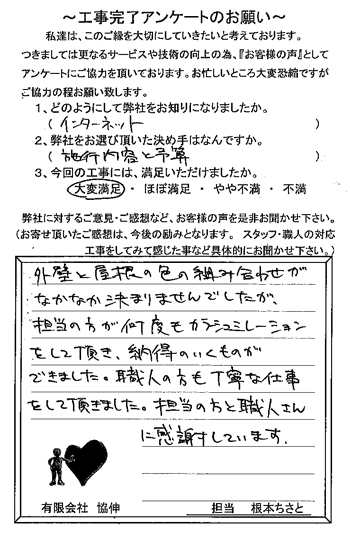 ～工事完了アンケートのお願い～
私達は、このご縁を大切にしていきたいと考えております。
つきましては更なるサービスや技術の向上の為、『お客様の声』として
アンケートにご協力を頂いております。お忙しいところ大変恐縮ですが
ご協力の程お願い致します。
１、どのようにして弊社をお知りになりましたか。
（ インターネット ）
２、弊社をお選び頂いた決め手はなんですか。
（ 施行内容と予算 ）
３、今回の工事には、満足いただけましたか。
大変満足 ・ ほぼ満足 ・ やや不満 ・ 不満
弊社に対するご意見・ご感想など、お客様の声を是非お聞かせ下さい。
(お寄せ頂いたご感想は、今後の励みとなります。 スタッフ・職人の対応
工事をしてみて感じた事など具体的にお聞かせ下さい。)
外壁と屋根の色の組み合わせが
なかなか決まりませんでしたが、
担当の方が何度もカラシュミレーション
をして頂き、納得のいくものが
できました。職人の方も丁寧な仕事
をして頂きました。担当の方と職人さん
に感謝しています。
有限会社 協伸
担当 根本ちさと